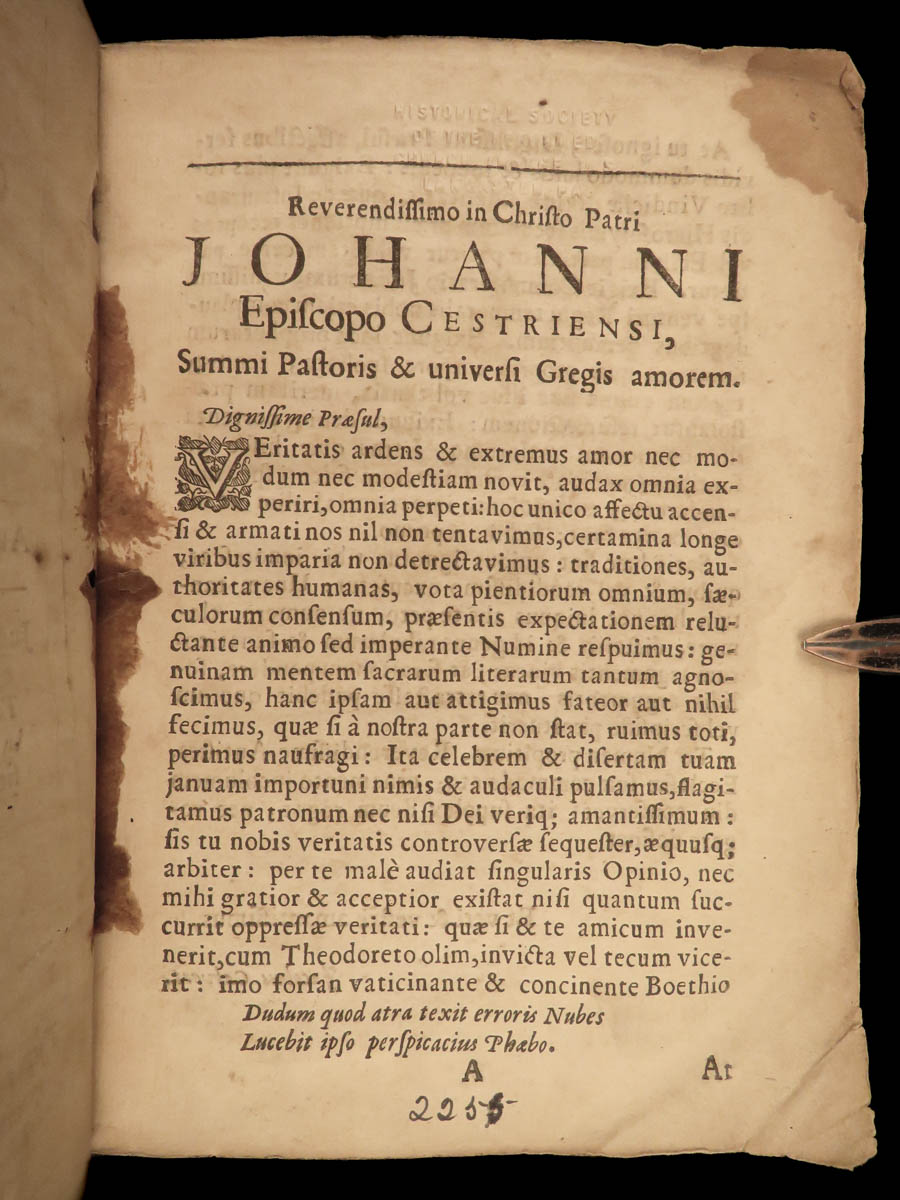 HISTORICAL SOCIETY
OF THE
Reverendiſſimo in Chriſto Patri
JOHANNI
Epiſcopo CESTRIENSI,
Summi Paſtoris & univerſi Gregis amorem.
Digniſſime Præſul,
VEritatis ardens & extremus amor nec mo-
dum nec modeſtiam novit, audax omnia ex-
periri, omnia perpeti: hoc unico affectu accen-
ſi & armati nos nil non tentavimus, certamina longe
viribus imparia non detrectavimus: traditiones, au-
thoritates humanas, vota pientiorum omnium, ſæ-
culorum conſenſum, præſentis expectationem relu-
ctante animo ſed imperante Numine reſpuimus: ge-
nuinam mentem ſacrarum literarum tantum agno-
ſcimus, hanc ipſam aut attigimus fateor aut nihil
fecimus, quæ ſi à noſtra parte non ſtat, ruimus toti,
perimus naufragi: Ita celebrem & diſertam tuam
januam importuni nimis & audaculi pulſamus, flagi-
tamus patronum nec niſi Dei veriq; amantiſſimum:
ſis tu nobis veritatis controverſæ ſequeſter, æquuſq;
arbiter: per te malè audiat ſingularis Opinio, nec
mihi gratior & acceptior exiſtat niſi quantum ſuc-
currit oppreſſæ veritati: quæ ſi & te amicum inve-
nerit, cum Theodoreto olim, invicta vel tecum vice-
rit: imo forſan vaticinante & concinente Boethio
Dudum quod atra texit erroris Nubes
Lucebit ipſo perſpicacius Phæbo.
A At